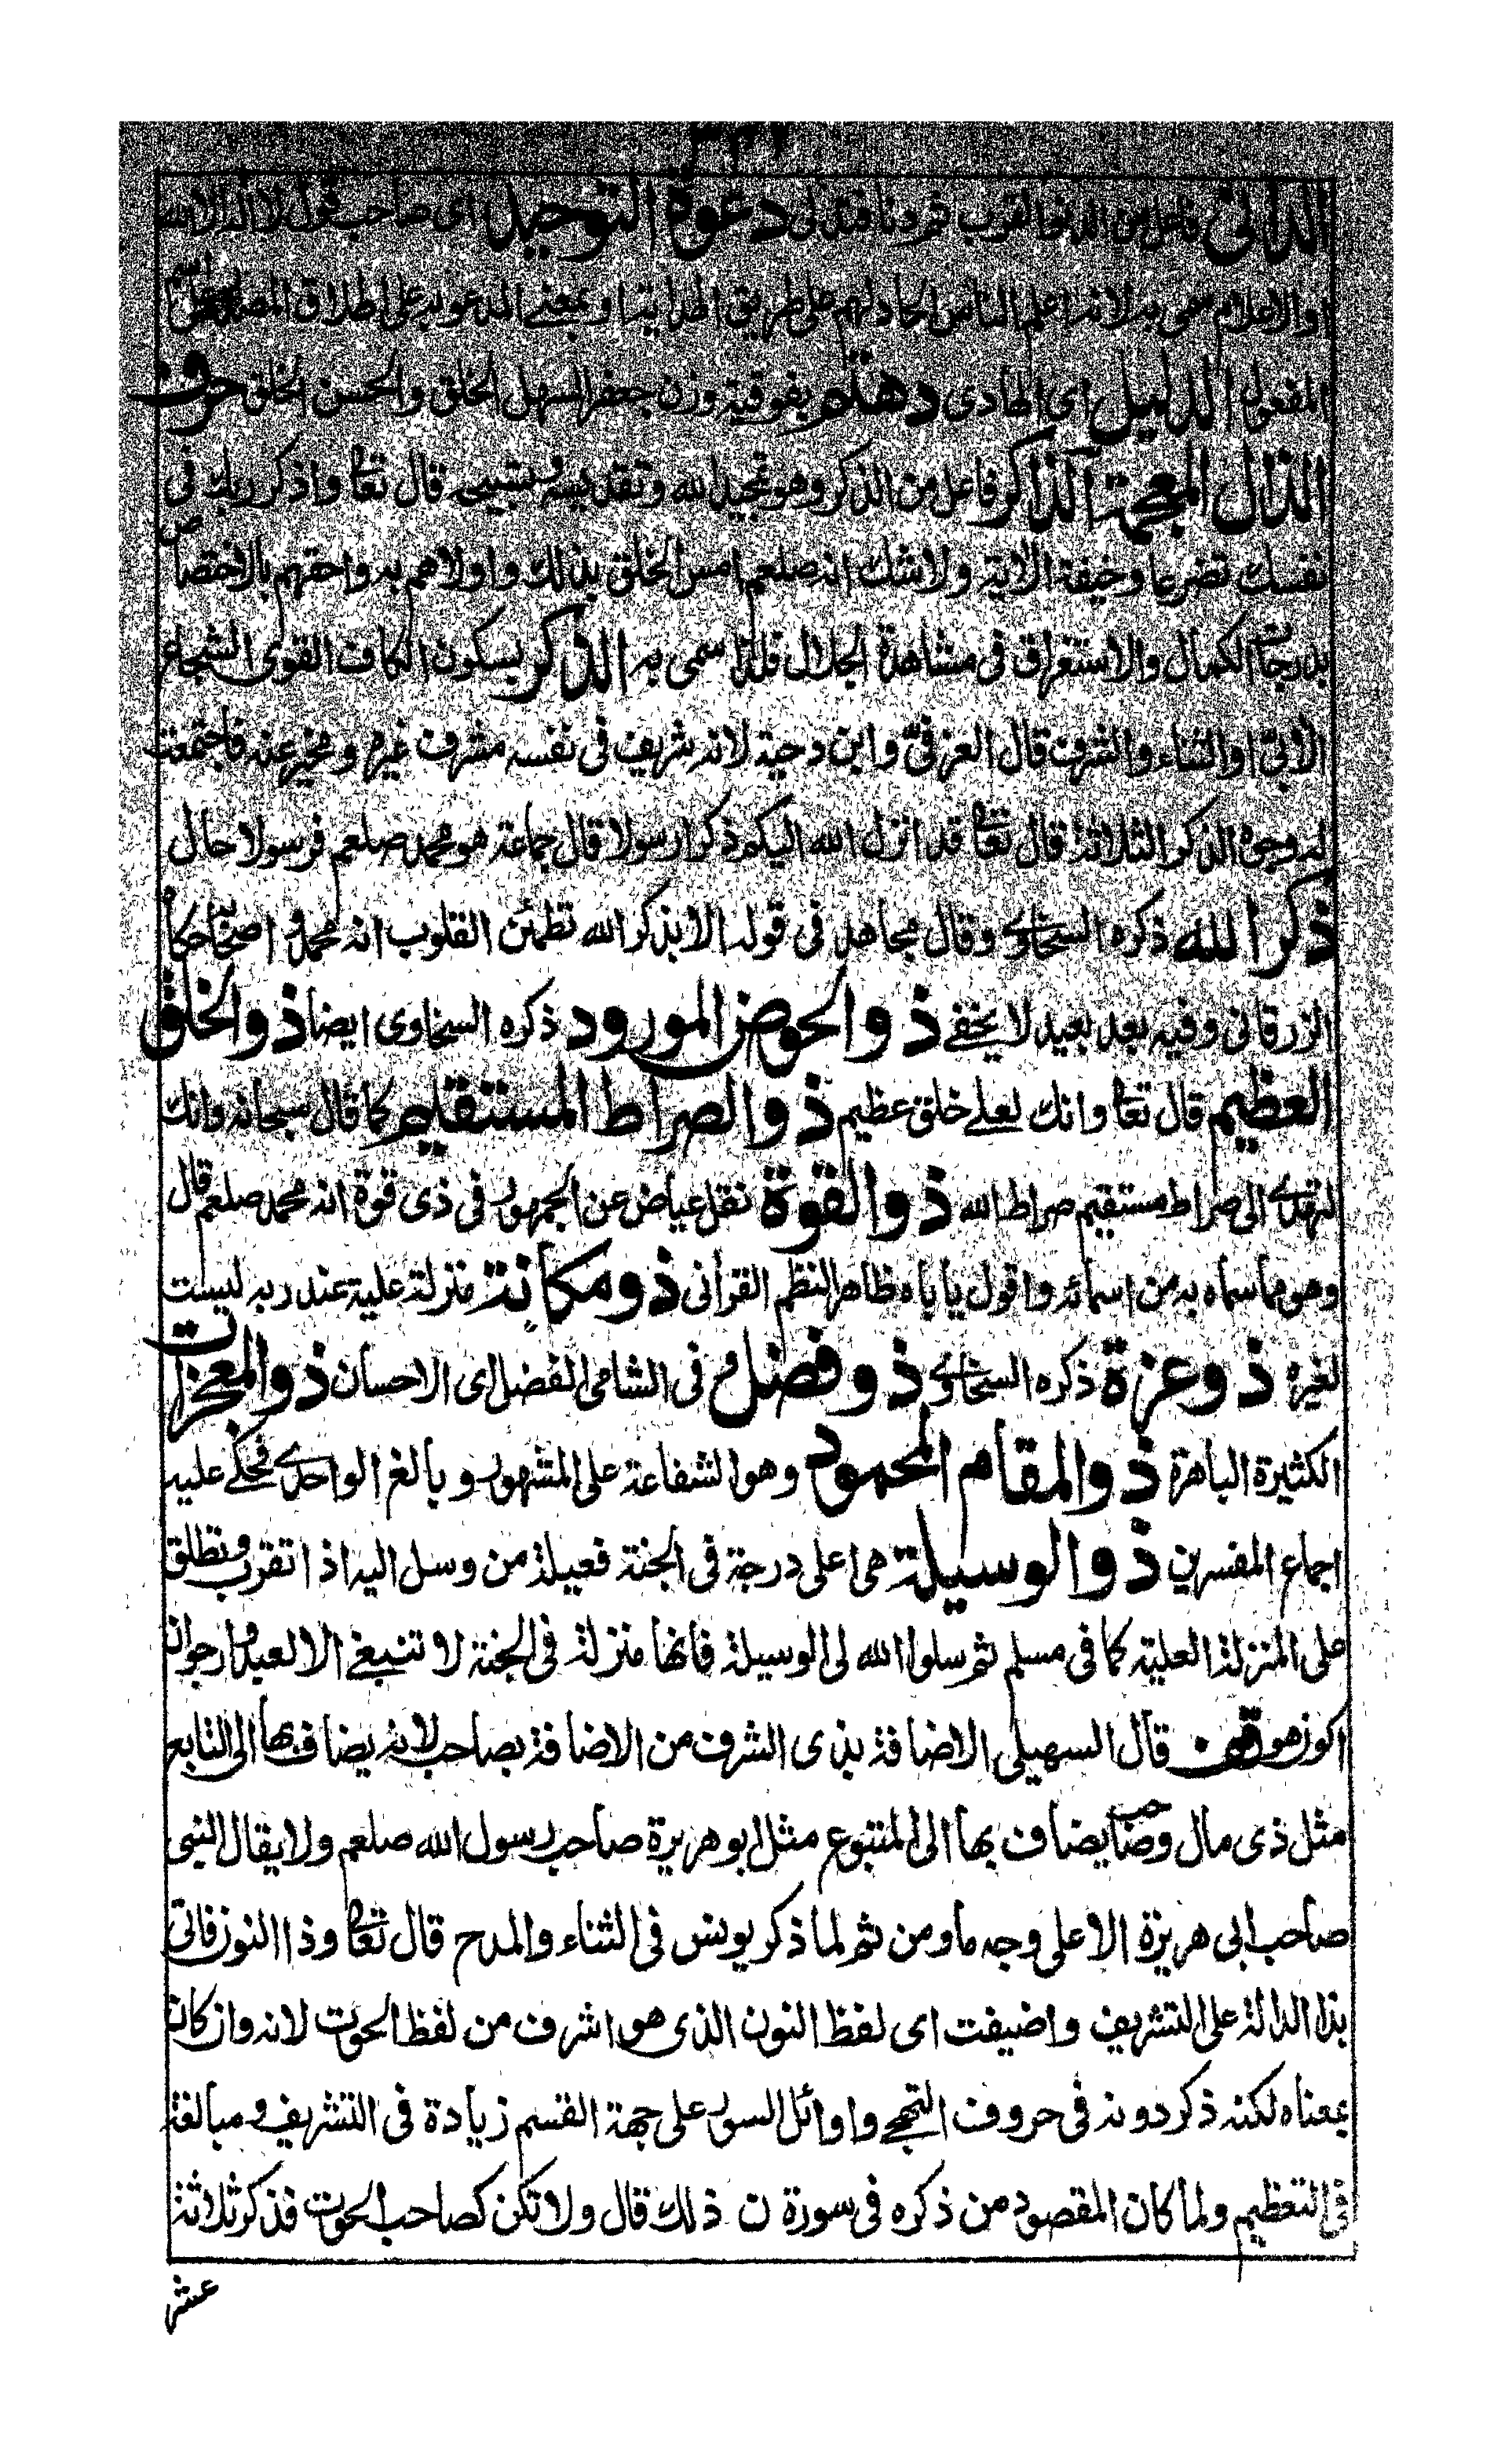 الدانی فاعل من الدنو القرب ثم دنا فتدلی دعوة التوحید ای صاحب قول لا اله الا الله
او الاعلام سمی به لانه اعلم الناس الحاد لهم علی طریق الهدایة او بمعنے المدعو به علی اطلاق المصدر علی اسم
المفعول الدلیل ای الهادی دهتم بفوقیة وزن جعفر السهل الخلق والحسن الخلق حرف
الذال المعجمة الذاکر فاعل من الذکر وهو تمجید الله وتقدیسه وتسبیحه قال تعا واذکر ربك فی
نفسك تضرعا وخیفة الآیة ولا شك انه صلعم امس الخلق بذلك واولاهم به واحقهم بالاختصاص
بدرجات الکمال والاستغراق فی مشاهدة الجلال فلذا سمی به الذکر بسکون الکاف القوی الشجاع
الابیّ او الثناء والشرف قال العزفیّ وابن دحیة لانه شریف فی نفسه مشرف غیره ومخبر عنه فاجتمعت
له وجوه الذکر الثلاثة قال تعا قد انزل الله الیکم ذکرا رسولا قال جماعة هو محمد صلعم فرسولا حال
ذکر الله ذکره السخاوی وقال مجاهد فی قوله الا بذکر الله تطمئن القلوب انه محمد واصحابه حکاه
الزرقانی وفیه بعد بعید لا یخفے ذو الحوض المورود ذکره السخاوی ایضا ذو الخلق
العظیم قال تعا وانك لعلے خلق عظیم ذو الصراط المستقیم کما قال سبحانه وانك
لتهدی الی صراط مستقیم صراط الله ذو القوة نقل عیاض عن الجمهور فی ذی قوة انه محمد صلعم قال
وهو مما سماه به من اسمائه واقول یاباه ظاهر النظم القرانی ذو مکانة منزلة علیة عند ربه لیست
لغیره ذو عزة ذکره السخاوی ذو فضل فی الشامی الفضل ای الاحسان ذو المعجزات
الکثیرة الباهرة ذو المقام المحمود وهو الشفاعة علی المشهور وبالغ الواحدی فحکے علیه
اجماع المفسرین ذو الوسیلة هی اعلی درجة فی الجنة فعیلة من وسل الیه اذا تقرب وتطلق
علی المنزلة العلیة کما فی مسلم ثم سلوا الله لی الوسیلة فانها منزلة فی الجنة لا تنبغے الا لعبد وارجو ان
اکون هو قف قال السهیلی الاضافة بذی اشرف من الاضافة بصاحب لانه یضاف بها الی التابع
مثل ذی مال وصاحب یضاف بها الی المتبوع مثل ابو هریرة صاحب رسول الله صلعم ولا یقال النبی
صاحب ابی هریرة الا علی وجه ما ومن ثم لما ذکر یونس فی الثناء والمدح قال تعا وذا النون فاتی
بذا الدالة علی التشریف واضیفت ای لفظ النون الذی هو اشرف من لفظ الحوت لانه وان کان
بمعناه لکنه ذکر دونه فی حروف التهجے واوائل السور علی جهة القسم زیادة فی التشریف ومبالغة
فی التعظیم ولما کان المقصود من ذکره فی سورة ن ذلك قال ولا تکن کصاحب الحوت فذکر ثلاثة
عشر